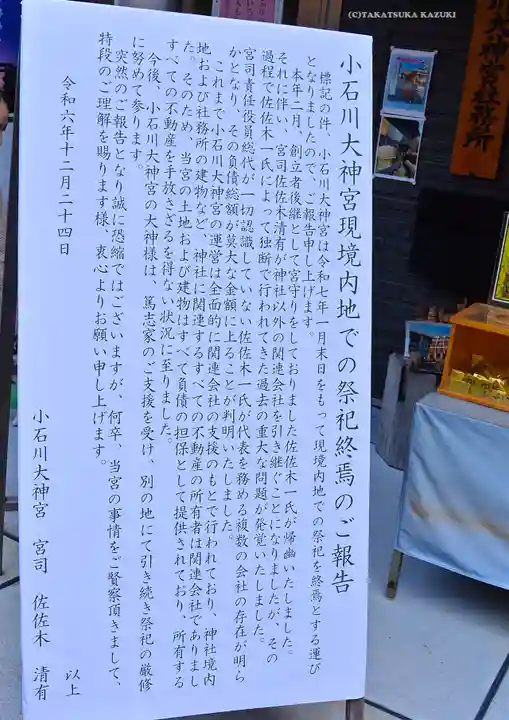 (C)TAKATSUKA KAZUKI
小石川大神宮現境内地での祭祀終焉のご報告
標記の件、小石川大神宮は令和七年一月末日をもって現境内地での祭祀を終焉とする運び
となりましたので、ご報告申し上げます。
本年二月、創立者後継として宮守りをしておりました佐佐木一氏が帰幽いたしました。
それに伴い、宮司佐佐木清有が神社以外の関連会社を引き継ぐことになりましたが、その
過程で佐佐木一氏によって独断で行われてきた過去の重大な問題が発覚いたしました。
宮司責任役員総代が一切認識していない佐佐木一氏が代表を務める複数の会社の存在が明ら
かとなり、その負債総額が莫大な金額に上ることが判明いたしました。
これまで小石川大神宮の運営は全面的に関連会社の支援のもとで行われており、神社境内
地および社務所の建物など、神社に関連するすべての不動産の所有者は関連会社でありまし
た。そのため、当宮の土地および建物はすべて負債の担保として提供されており、所有する
すべての不動産を手放さざるを得ない状況に至りました。
今後、小石川大神宮の大神様は、篤志家のご支援を受け、別の地にて引き続き祭祀の厳修
に努めて参ります。
突然のご報告となり誠に恐縮ではございますが、何卒、当宮の事情をご賢察頂きまして、
特段のご理解を賜ります様、衷心よりお願い申し上げます。
以上
令和六年十二月二十四日
小石川大神宮 宮司 佐佐木 清有
川大神宮社務所